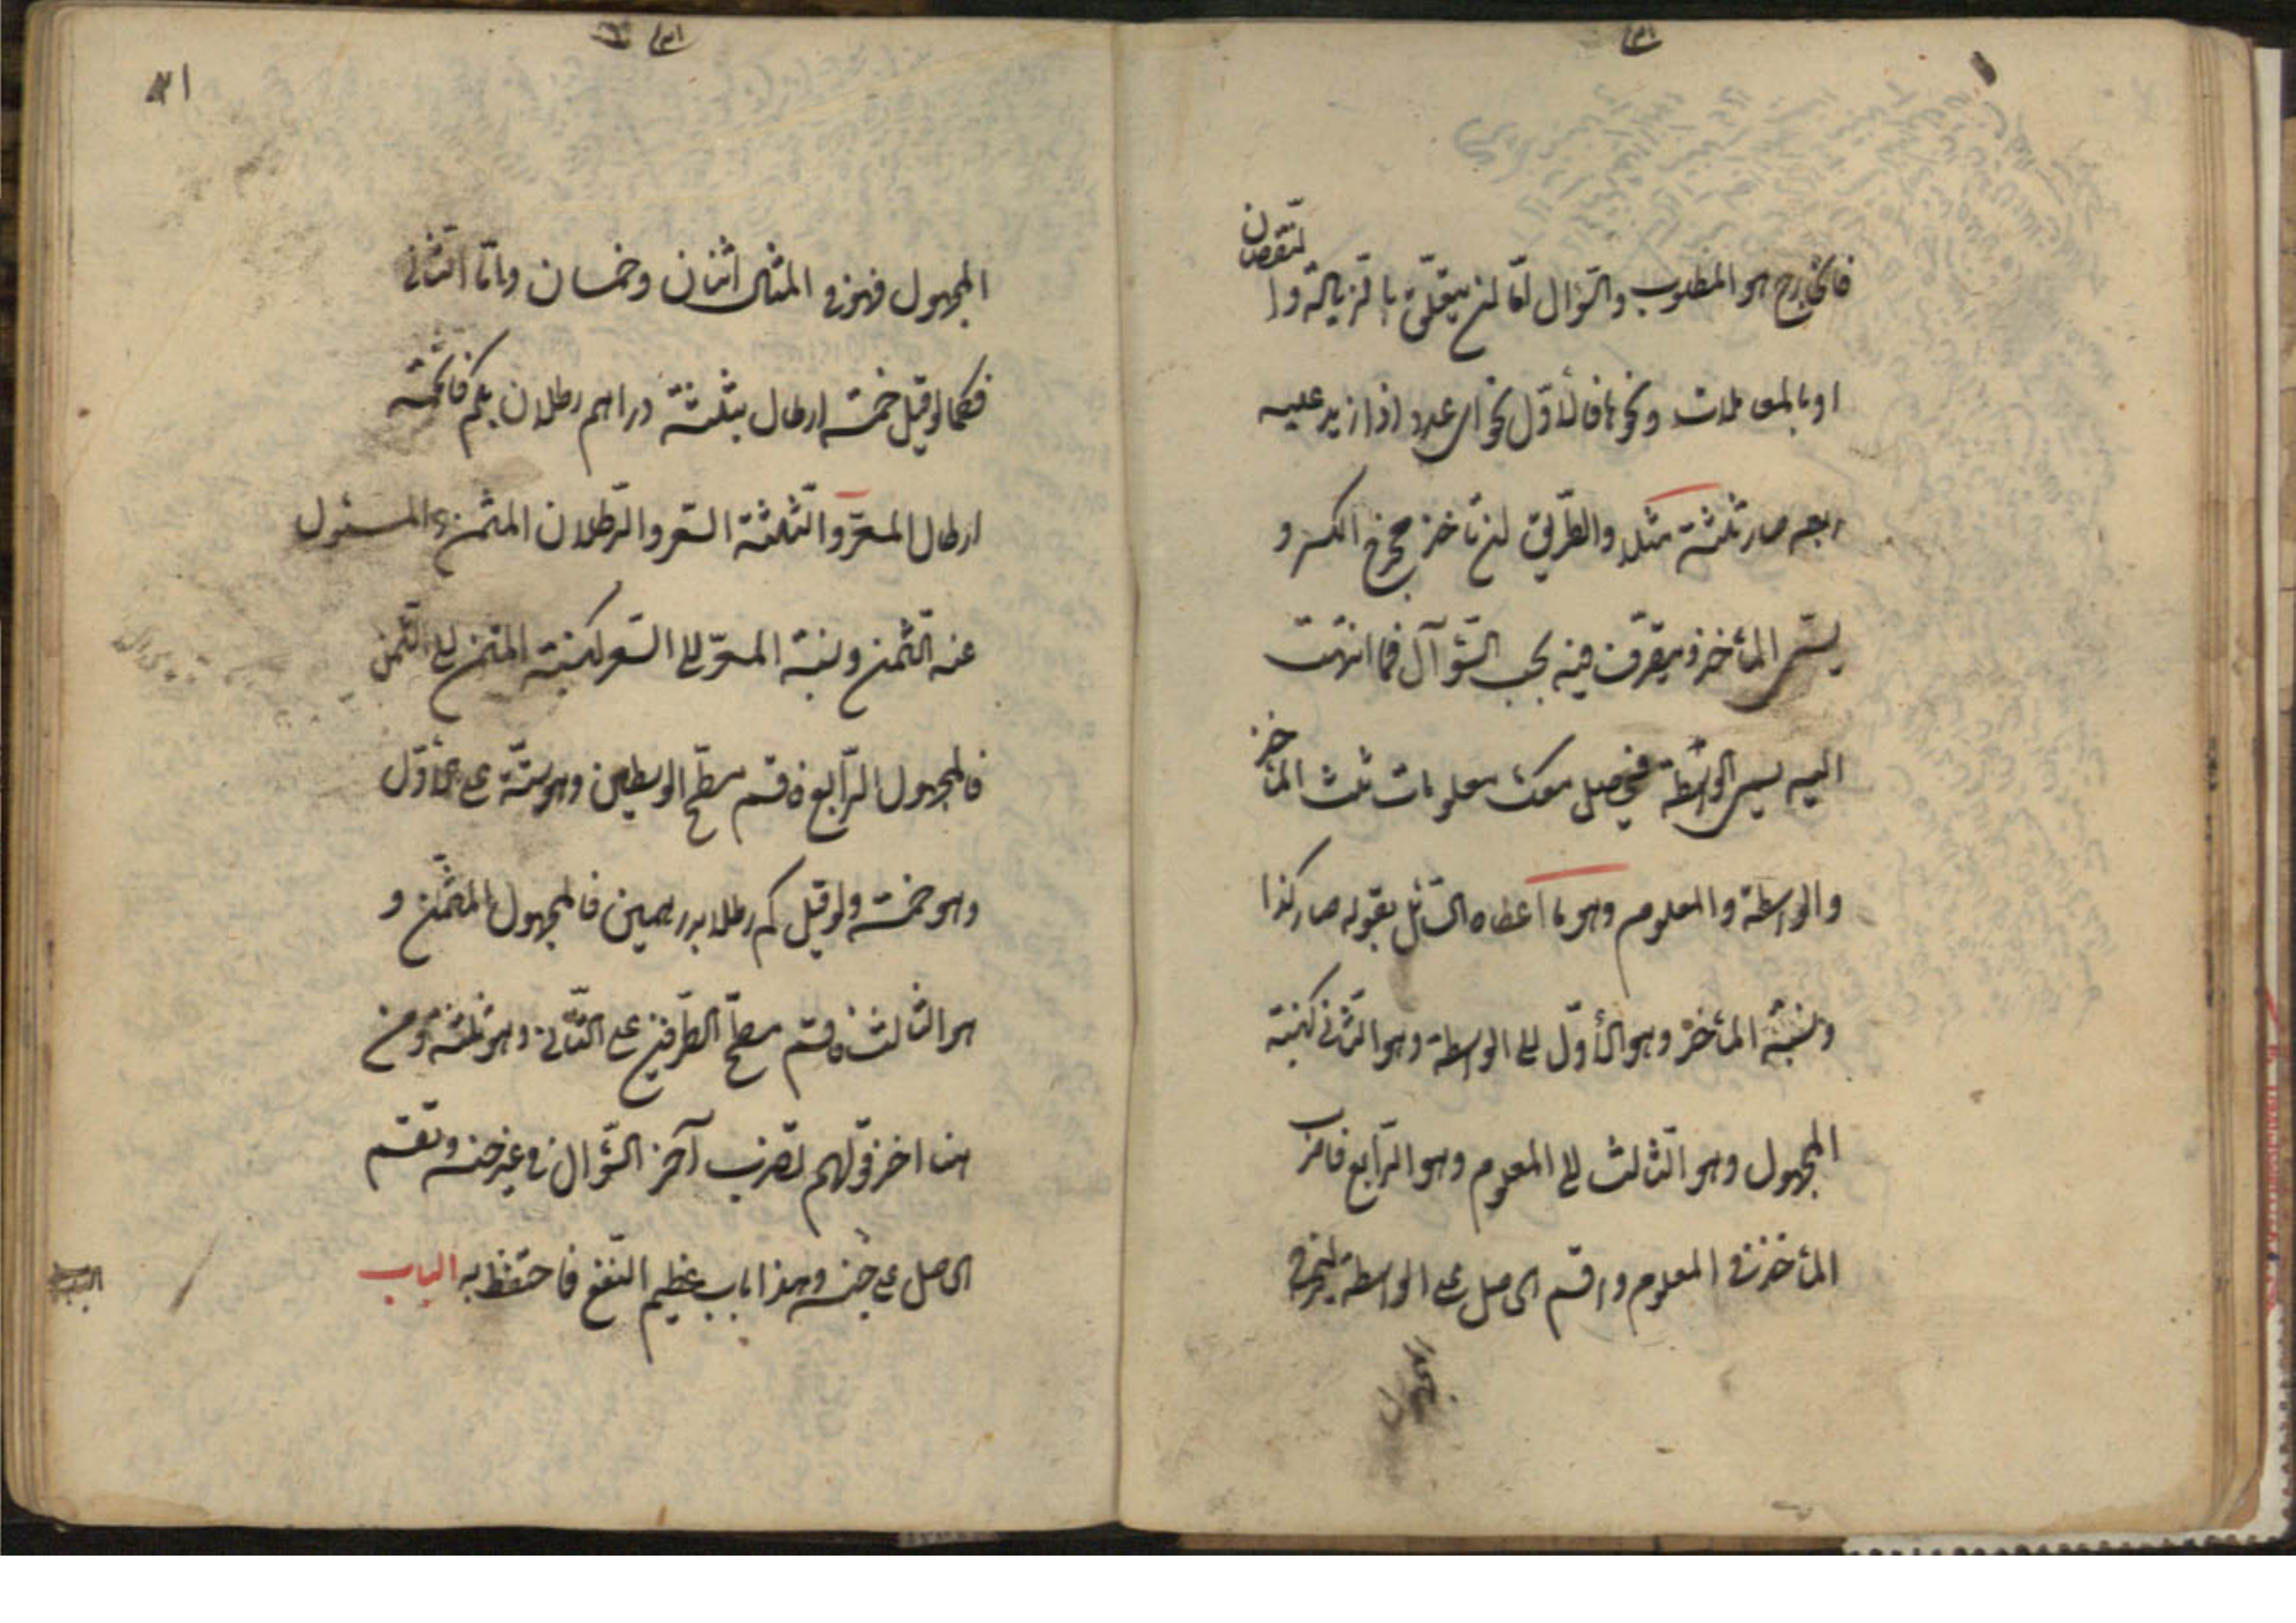 فالخارج هو المطلوب والسّؤال امّا ان يتعلّق بالزيادة والنقصان
او بالمعاملات ونحوها فالأوّل نحو اى عدد اذا زيد عليه
ربعه صار ثلثة مثلا والطّريق ان تأخذ مخرج الكسر و
يسمّى المأخذ وتتصرّف فيه بحسب السّؤال فما انتهت
اليه يسمى الواسطة فيحصل معك معلومات ثلث المأخذ
والواسطة والمعلوم وهو ما اعطاه السّائل بقوله صار كذا
ونسبة المأخذ وهو الأوّل الى الواسطة وهو الثّانى كنسبة
المجهول وهو الثّالث الى المعلوم وهو الرّابع فاضرب
المأخذ فى المعلوم واقسم الحاصل على الواسطة ليخرج
المجهول
١٣١
المجهول فهو فى المثال اثنان وخمسان وامّا الثّانى
فكما لو قيل خمسة ارطال بثلثة دراهم رطلان بكم فالخمسة
ارطال المسعّر والثّلثة السّعر والرّطلان المثمن والمسئول
عنه الثّمن ونسبة المسعّر الى السّعر كنسبة المثمن الى الثّمن
فالمجهول الرّابع فاقسم مسطّح الوسطين وهو ستّة على الأوّل
وهو خمسة ولو قيل كم رطلا بدرهمين فالمجهول المثمّن و
هو الثالث فاقسم مسطّح الطّرفين على الثّانى وهو ثلثة ومن
هنا اخذ قولهم تضرب آخر السّؤال فى غير جنسه وتقسم
الحاصل على جنسه وهذا باب عظيم النّفع فاحتفظ به الباب